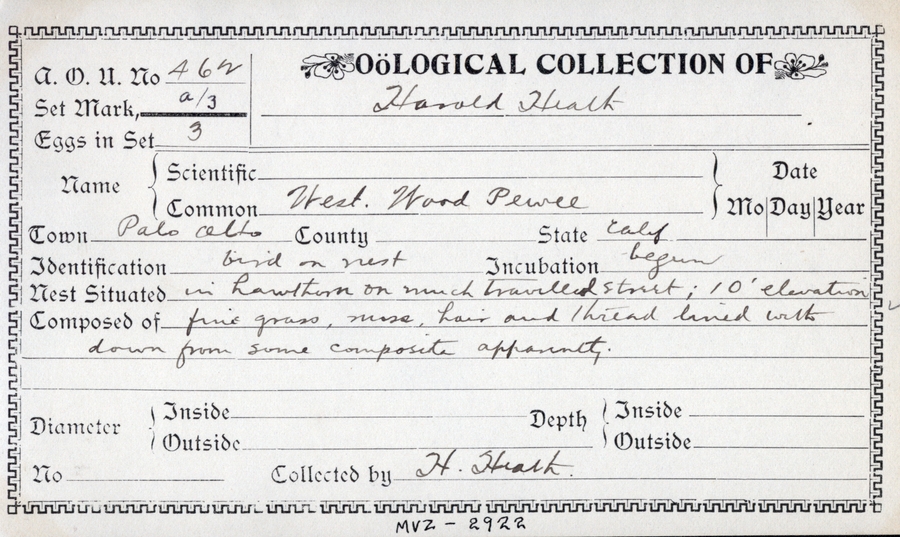 OöLOGICAL COLLECTION OF
A. O. U. No 462
Harold Heath
Set Mark, a/3
Eggs in Set 3
Name { Scientific
Common West. Wood Pewee } Date
Mo Day Year
Town Palo Alto County State Calif
Identification bird on nest Incubation begun
Nest Situated in hawthorn on much travelled street; 10' elevation
Composed of fine grass, moss, hair and thread lined with
down from some composite apparently.
Diameter { Inside Depth { Inside
Outside Outside
No Collected by H. Heath.
MVZ - 2922